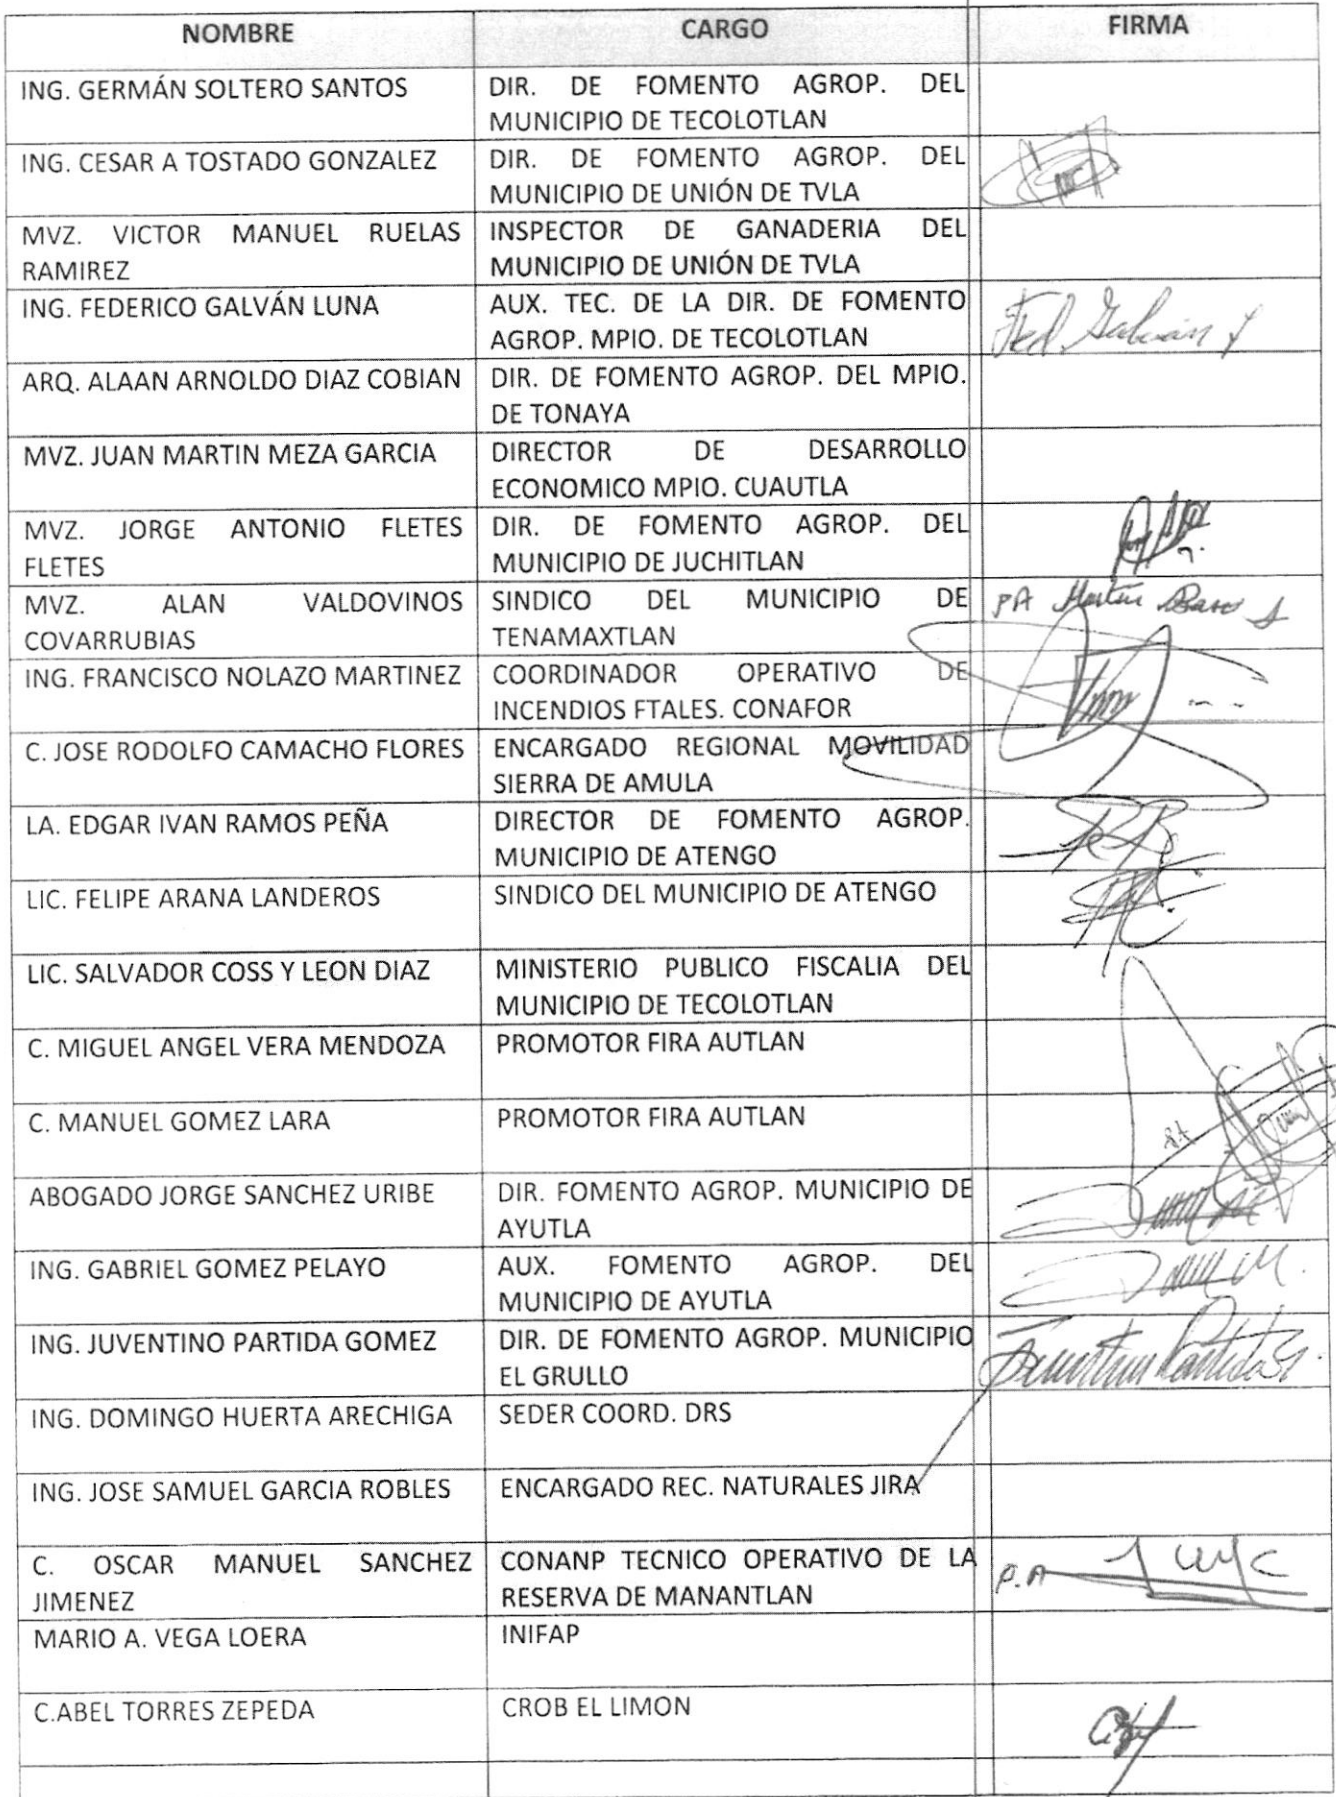 NOMBRE CARGO FIRMA
ING. GERMÁN SOLTERO SANTOS DIR. DE FOMENTO AGROP. DEL
MUNICIPIO DE TECOLOTLAN
ING. CESAR A TOSTADO GONZALEZ DIR. DE FOMENTO AGROP. DEL
MUNICIPIO DE UNIÓN DE TVLA
MVZ. VICTOR MANUEL RUELAS INSPECTOR DE GANADERIA DEL
RAMIREZ MUNICIPIO DE UNIÓN DE TVLA
ING. FEDERICO GALVÁN LUNA AUX. TEC. DE LA DIR. DE FOMENTO
AGROP. MPIO. DE TECOLOTLAN Fed. Galván
ARQ. ALAAN ARNOLDO DIAZ COBIAN DIR. DE FOMENTO AGROP. DEL MPIO.
DE TONAYA
MVZ. JUAN MARTIN MEZA GARCIA DIRECTOR DE DESARROLLO
ECONOMICO MPIO. CUAUTLA
MVZ. JORGE ANTONIO FLETES DIR. DE FOMENTO AGROP. DEL
FLETES MUNICIPIO DE JUCHITLAN
MVZ. ALAN VALDOVINOS SINDICO DEL MUNICIPIO DE PA
COVARRUBIAS TENAMAXTLAN
ING. FRANCISCO NOLAZO MARTINEZ COORDINADOR OPERATIVO DE
INCENDIOS FTALES. CONAFOR
C. JOSE RODOLFO CAMACHO FLORES ENCARGADO REGIONAL MOVILIDAD
SIERRA DE AMULA
LA. EDGAR IVAN RAMOS PEÑA DIRECTOR DE FOMENTO AGROP.
MUNICIPIO DE ATENGO
LIC. FELIPE ARANA LANDEROS SINDICO DEL MUNICIPIO DE ATENGO
LIC. SALVADOR COSS Y LEON DIAZ MINISTERIO PUBLICO FISCALIA DEL
MUNICIPIO DE TECOLOTLAN
C. MIGUEL ANGEL VERA MENDOZA PROMOTOR FIRA AUTLAN
C. MANUEL GOMEZ LARA PROMOTOR FIRA AUTLAN
ABOGADO JORGE SANCHEZ URIBE DIR. FOMENTO AGROP. MUNICIPIO DE
AYUTLA
ING. GABRIEL GOMEZ PELAYO AUX. FOMENTO AGROP. DEL
MUNICIPIO DE AYUTLA
ING. JUVENTINO PARTIDA GOMEZ DIR. DE FOMENTO AGROP. MUNICIPIO
EL GRULLO Juventino Partida G.
ING. DOMINGO HUERTA ARECHIGA SEDER COORD. DRS
ING. JOSE SAMUEL GARCIA ROBLES ENCARGADO REC. NATURALES JIRA
C. OSCAR MANUEL SANCHEZ CONANP TECNICO OPERATIVO DE LA P.A
JIMENEZ RESERVA DE MANANTLAN
MARIO A. VEGA LOERA INIFAP
C.ABEL TORRES ZEPEDA CROB EL LIMON